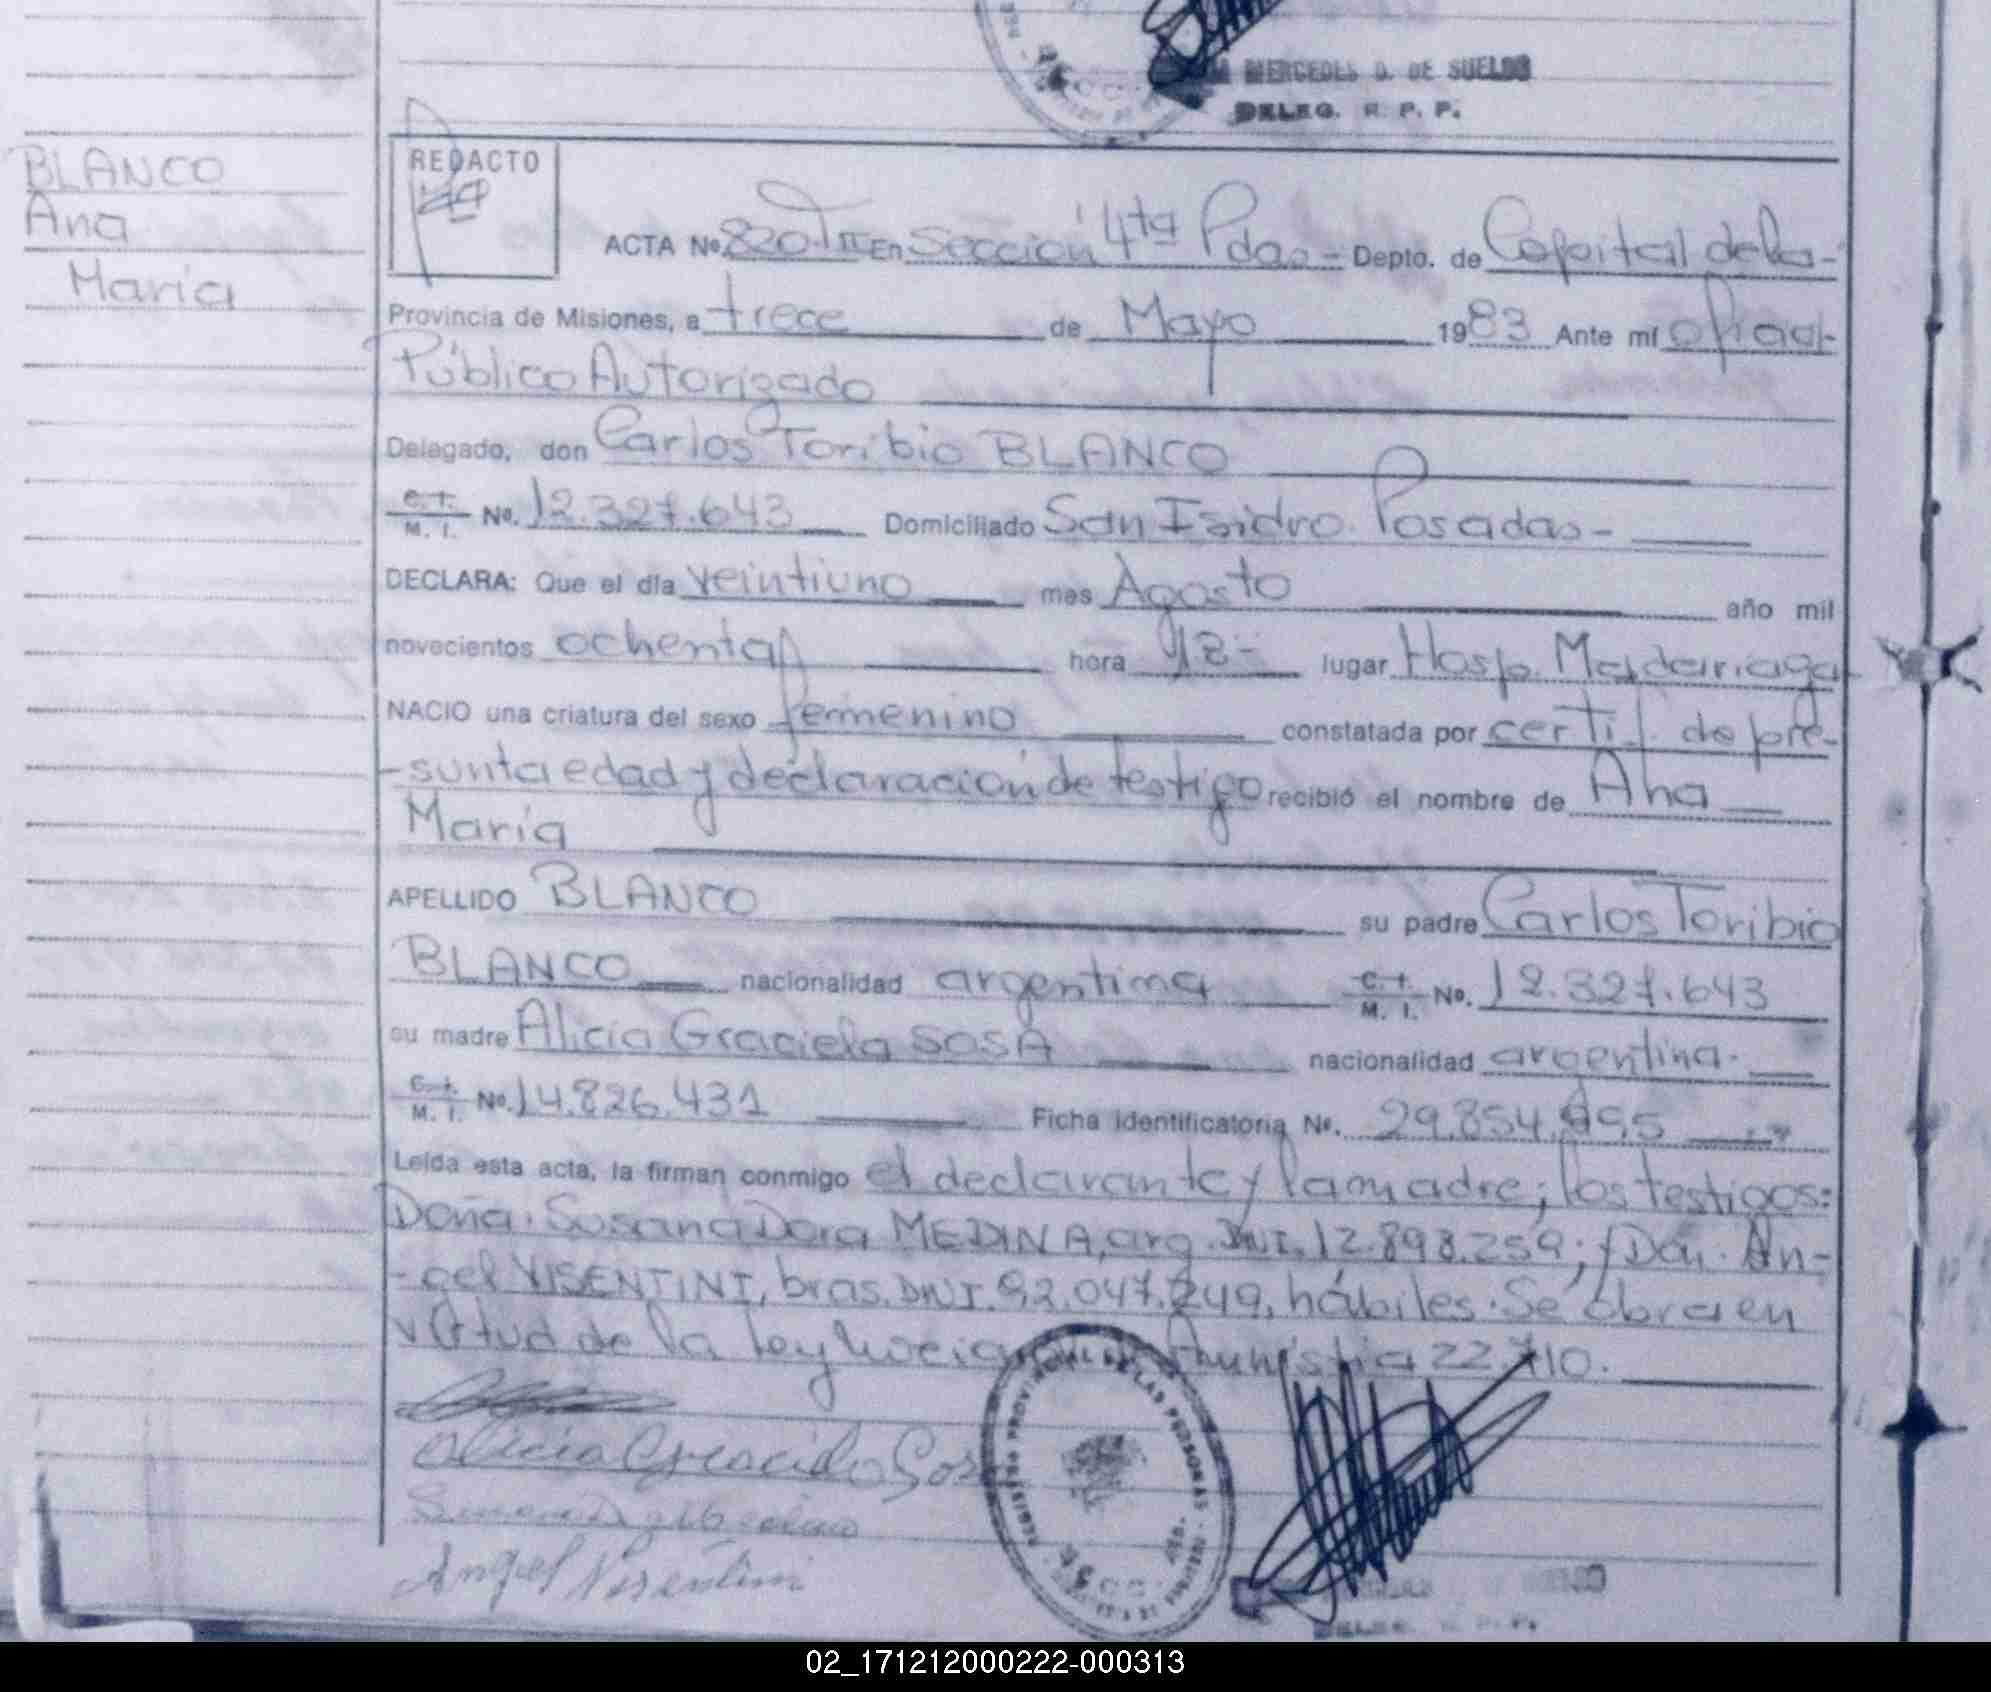 MERCEDES D. DE SUELDO
DELEG. R. P. P.
BLANCO
Ana
María
REDACTO
ACTA Nº 820 TII En Sección 4ta Pdas.- Depto. de Capital de la-
Provincia de Misiones, a trece de Mayo 1983 Ante mí oficial
Público Autorizado
Delegado, don Carlos Toribio BLANCO
C. I. M. I. Nº. 12.327.643 Domiciliado San Isidro. Posadas-
DECLARA: Que el día veintiuno mes Agosto año mil
novecientos ochenta hora 12- lugar Hosp. Madariaga
NACIO una criatura del sexo femenino constatada por certif. de pre-
-sunta edad y declaración de testigo recibió el nombre de Ana
María
APELLIDO BLANCO su padre Carlos Toribio
BLANCO nacionalidad argentina C. I. M. I. Nº. 12.327.643
su madre Alicia Graciela SOSA nacionalidad argentina.
C. I. M. I. Nº. 14.826.431 Ficha Identificatoria Nº. 29.854.995
Leída esta acta, la firman conmigo el declarante y la madre; los testigos:
Doña. Susana Dora MEDINA, arg. DNI. 12.898.259; y Don. An-
-gel VISENTINI, bras. DNI. 92.047.249, hábiles. Se obra en
virtud de la ley Amnistia 22710.
Alicia Graciela Sosa
Angel Visentini
REGISTRO PROVINCIAL DE LAS PERSONAS
DELEG. R. P. P.
02_171212000222-000313